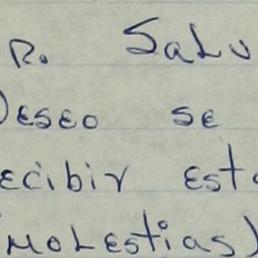 R. SaLu
Deseo se
ecibir est
(moLestias)